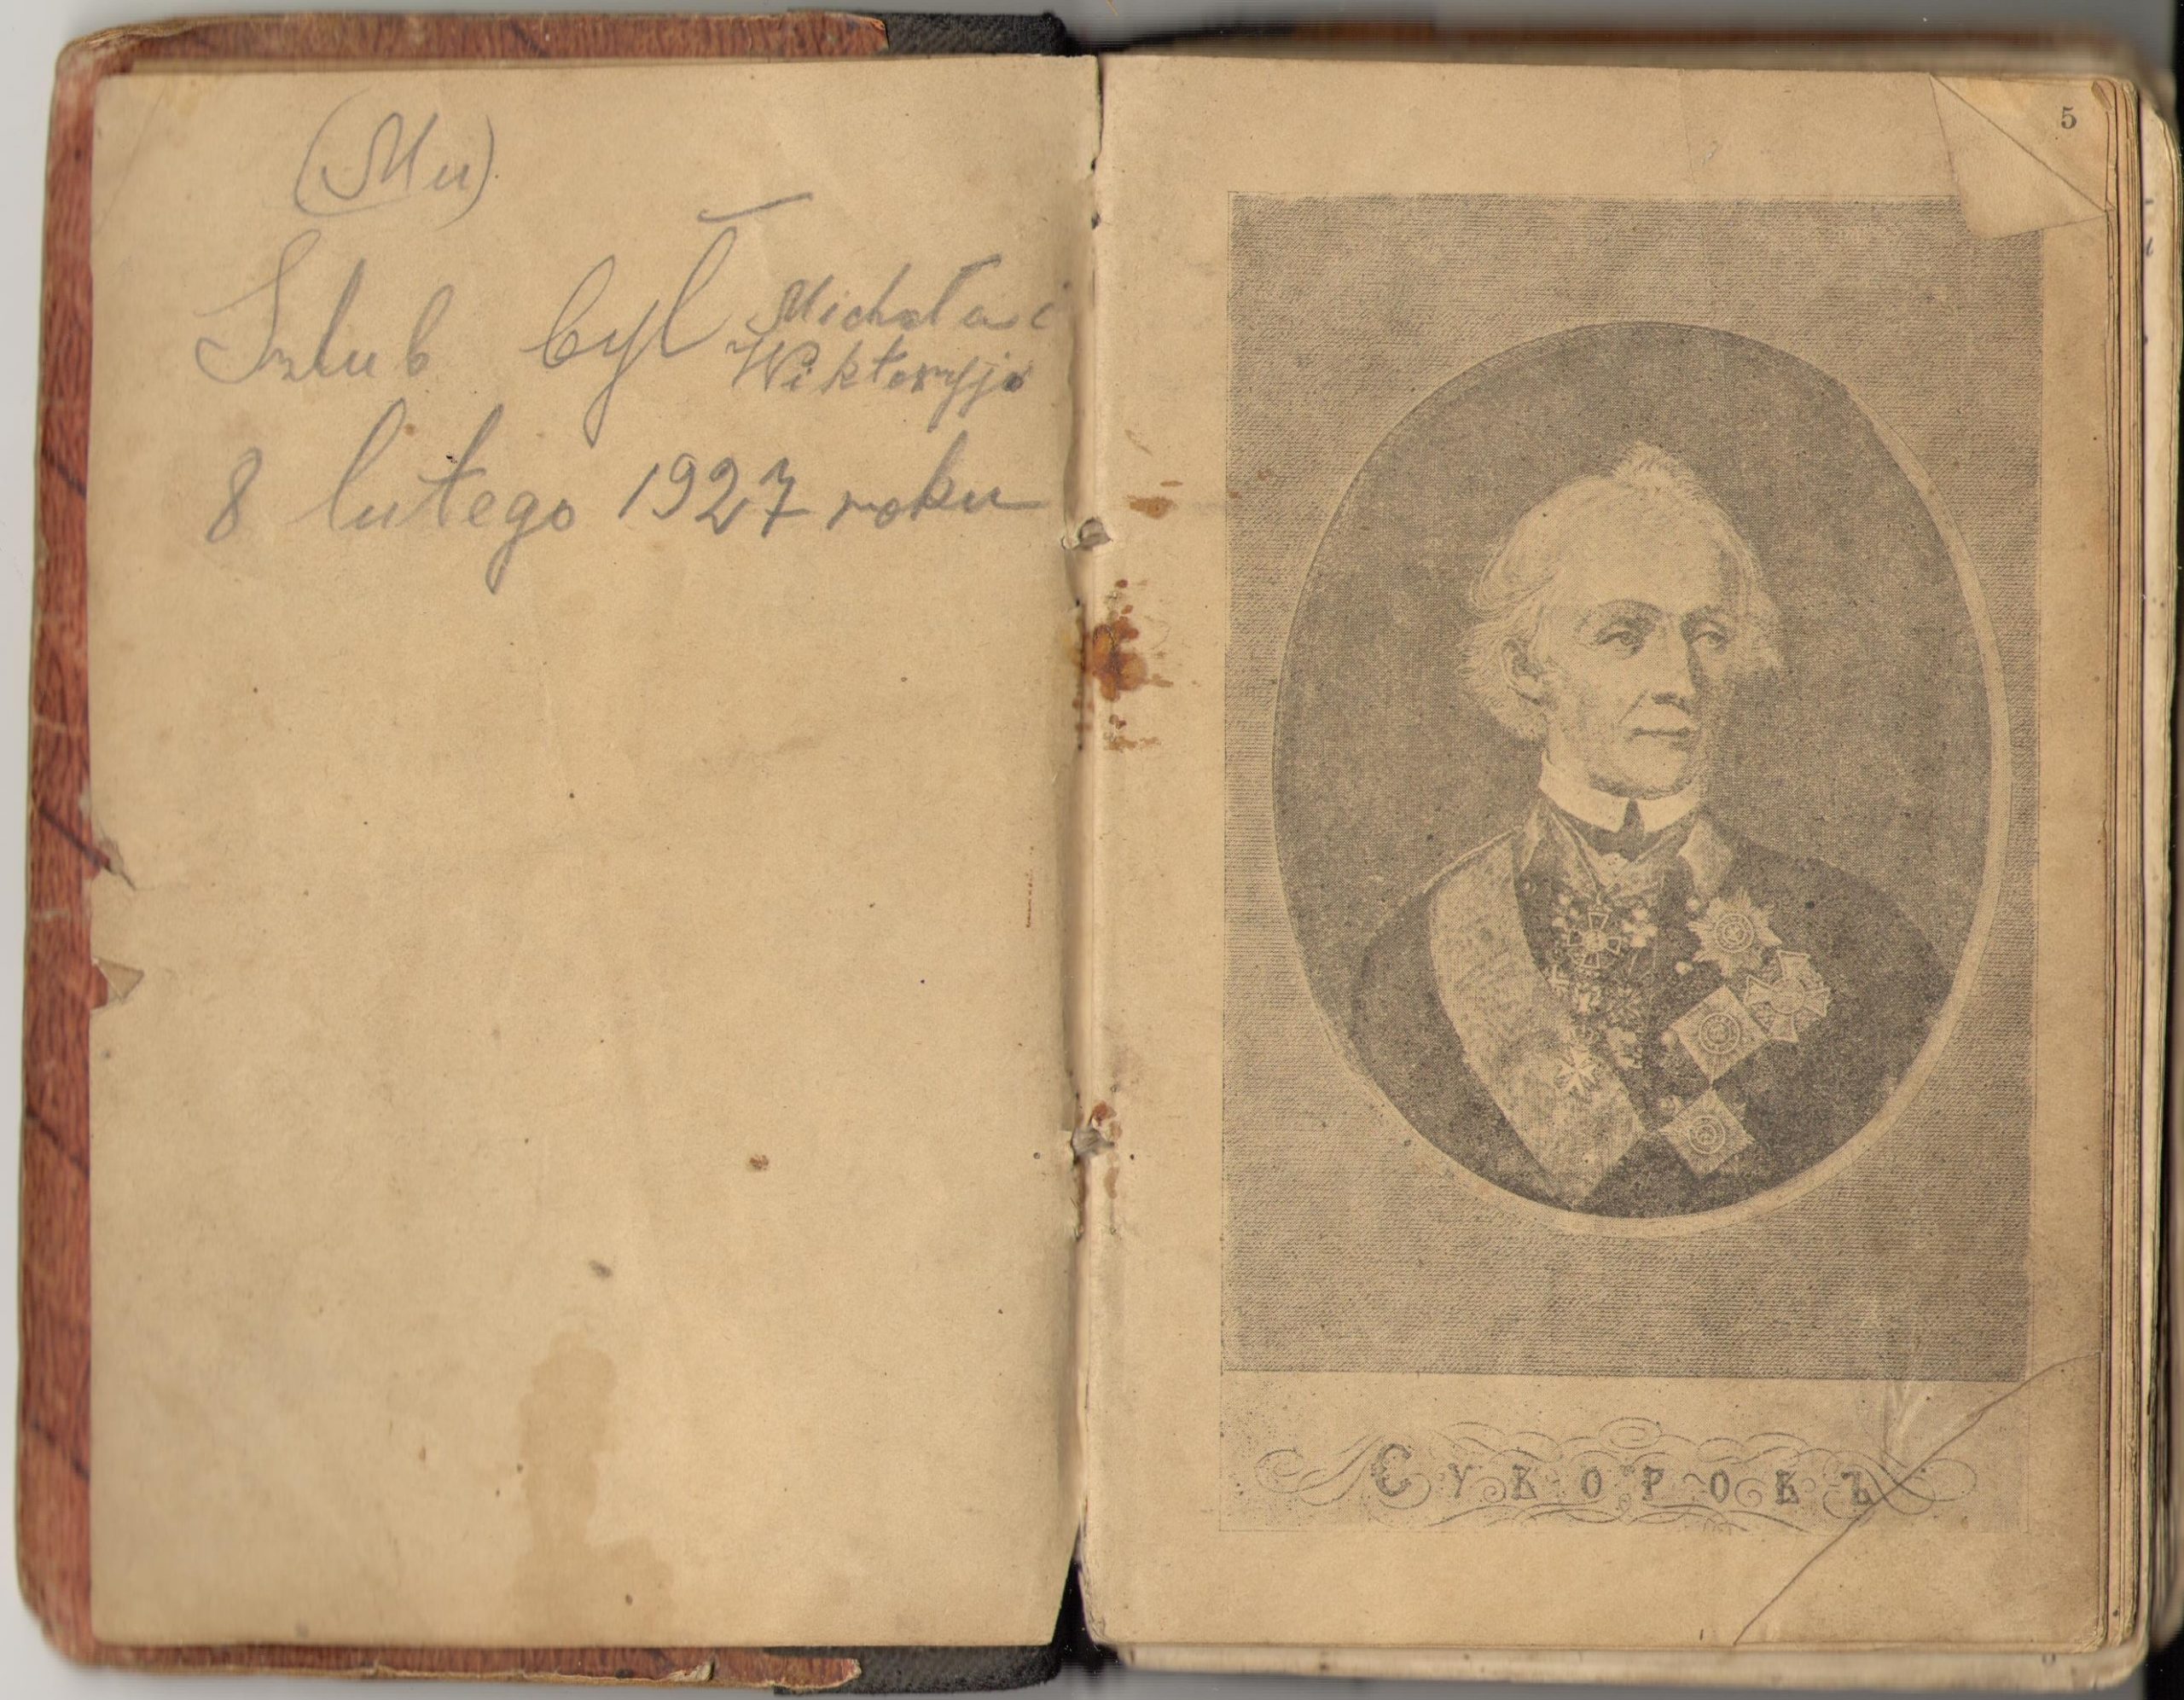 (Mu)
Szlub był Michała i
Wiktoryjo
8 lutego 1927 roku
5
Суворовъ